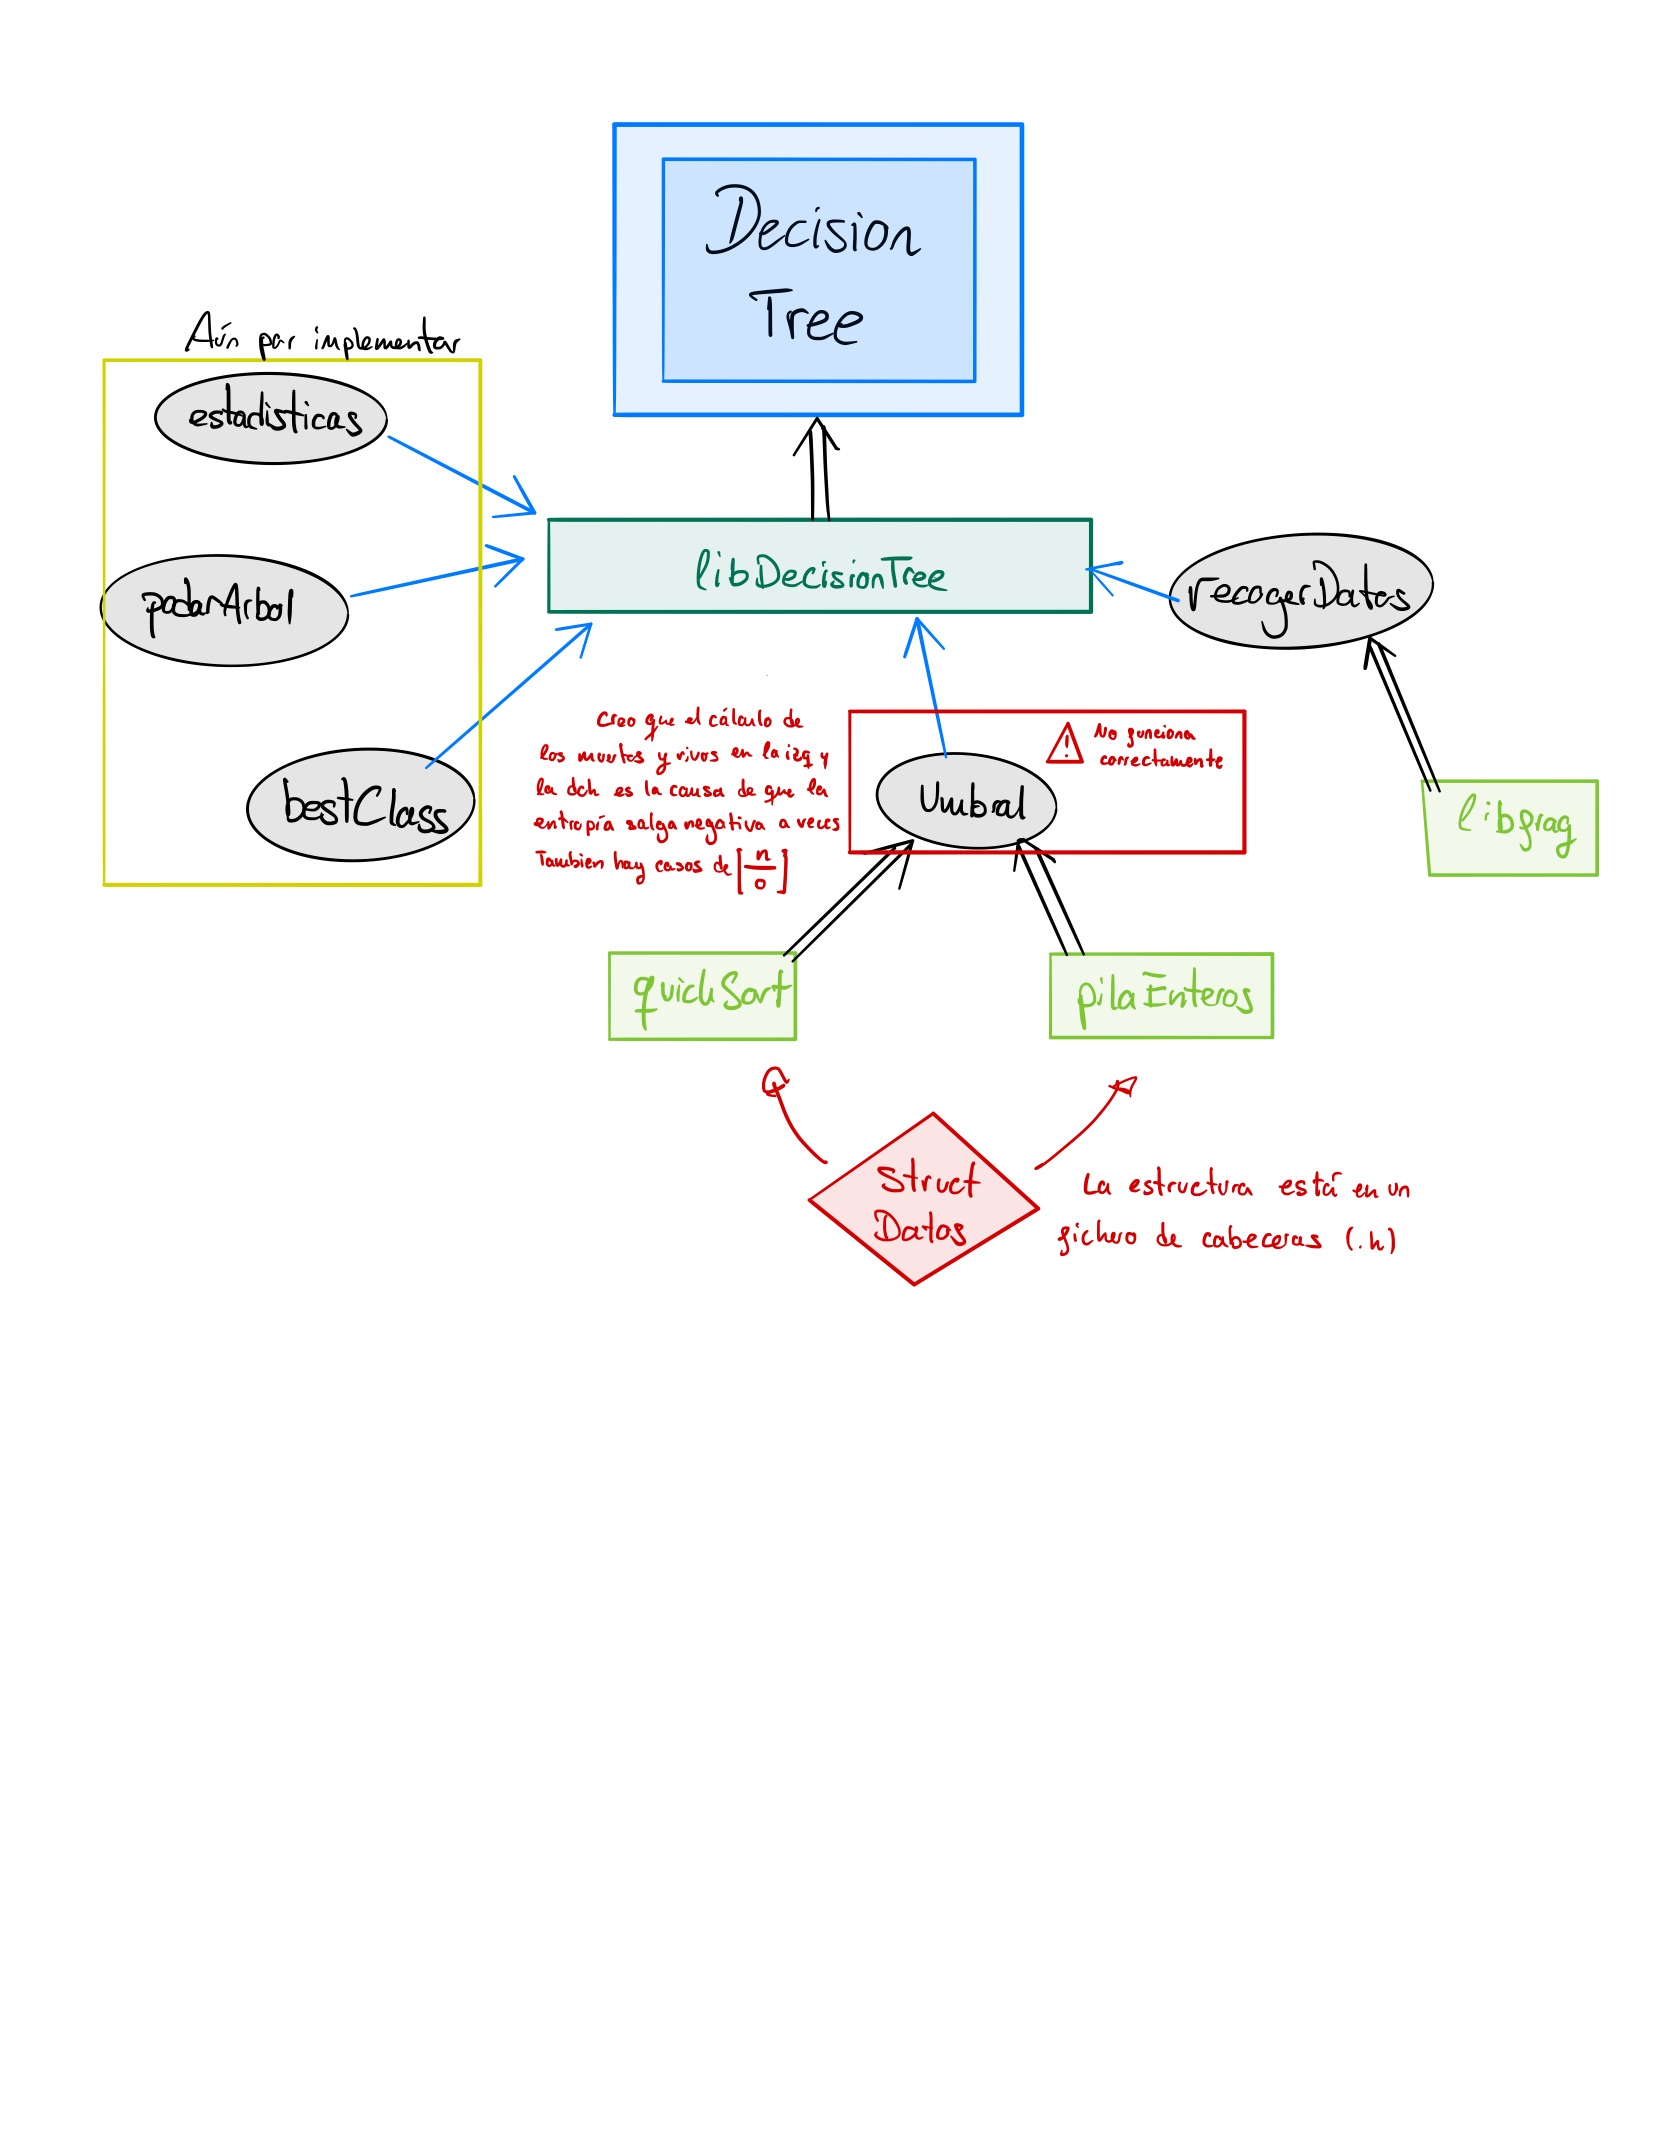 Decision
Tree
Aún por implementar
estadisticas
podarArbol
bestClass
libDecisionTree
recogerDatos
libfrag
Creo que el cálculo de
los muertos y vivos en la izq y
la dch es la causa de que la
entropía salga negativa a veces
Tambien hay casos de [n/0]
No funciona
correctamente
Umbral
quickSort
pilaEnteros
Struct
Datos
La estructura está en un
fichero de cabeceras (.h)